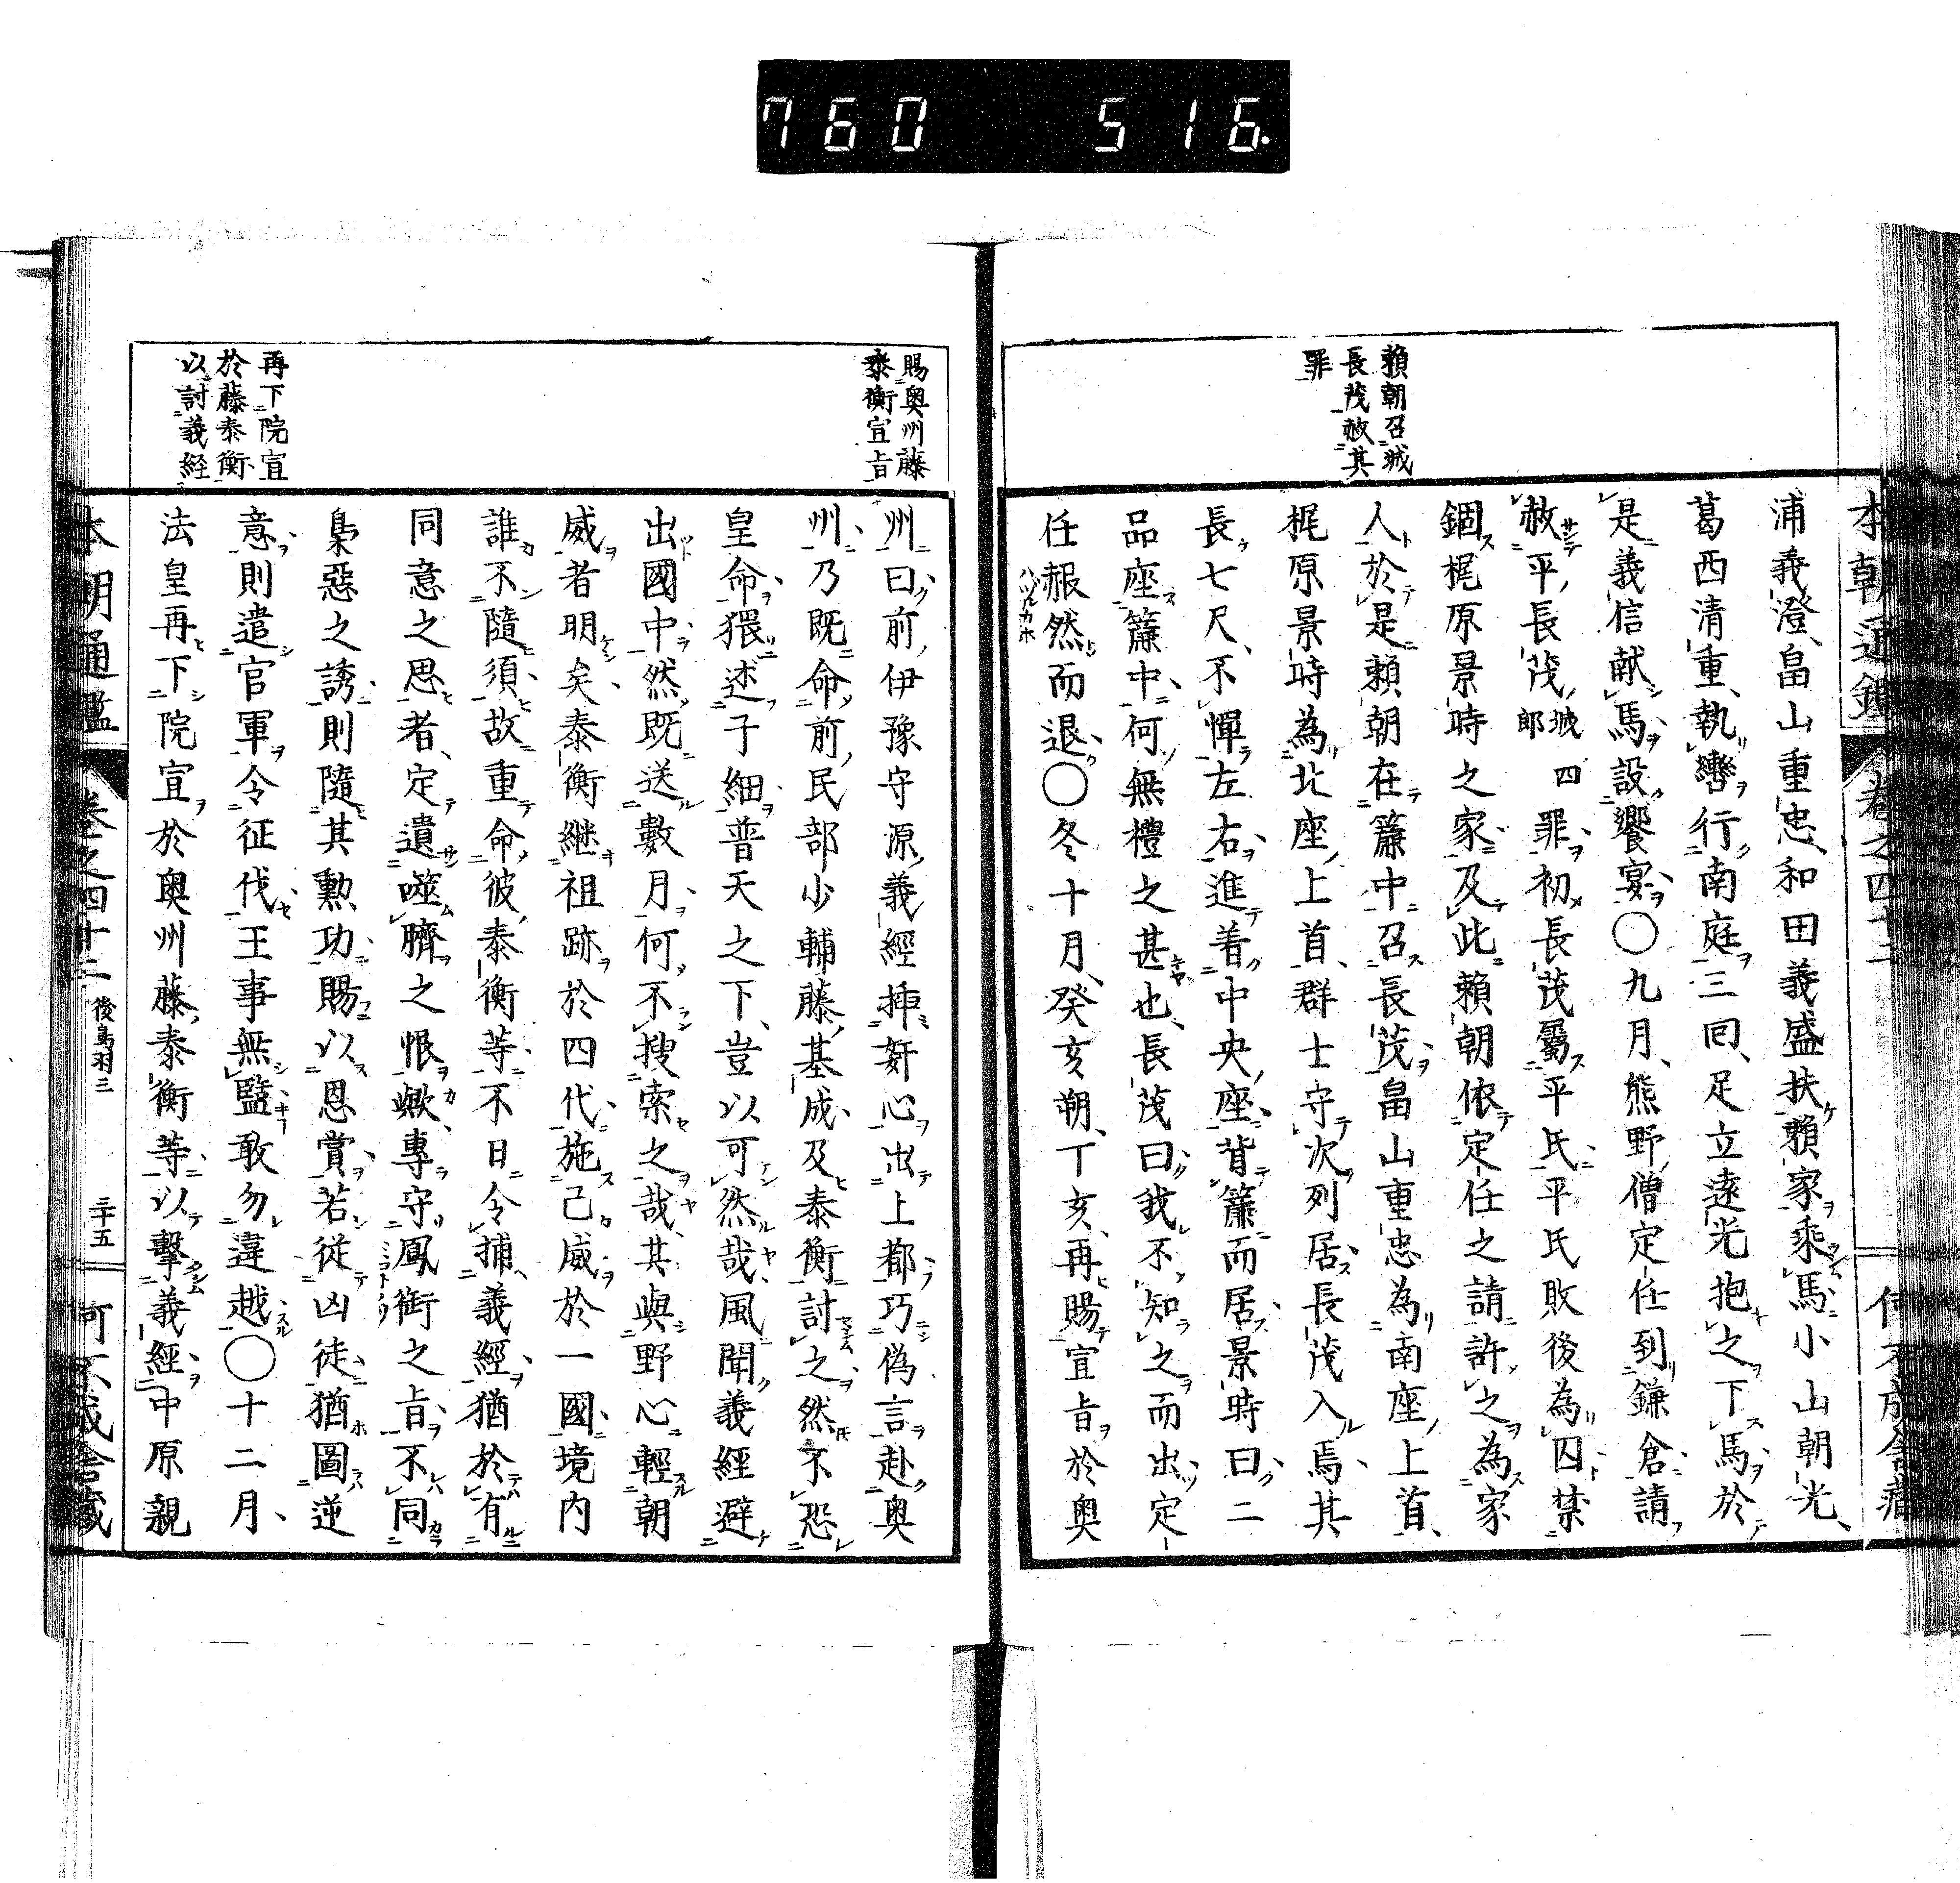 760 516.
賴朝召城
長茂赦其
罪
浦義澄畠山重忠和田義盛扶賴家乘馬小山朝光
葛西清重執轡行南庭三囘足立遠光抱之下馬於
是義信献馬設饗宴〇九月熊野僧定任到鎌倉請
赦平長茂城四郎罪初長茂屬平氏平氏敗後為囚禁
錮梶原景時之家及此賴朝依定任之請許之為家
人於是賴朝在簾中召長茂畠山重忠為南座上首
梶原景時為北座上首群士守次列居長茂入焉其
長七尺不憚左右進着中央座背簾而居景時曰二
品座簾中何無禮之甚也長茂曰我不知之而出定
任赧然而退〇冬十月癸亥朔丁亥再賜宣旨於奧
賜奧州藤
泰衡宣旨
再下院宣
於藤泰衡
以討義経
州曰前伊豫守源義經挿奸心出上都巧偽言赴奧
州乃既命前民部少輔藤基成及泰衡討之然不恐
皇命猥述子細普天之下豈以可然哉風聞義經避
出國中然既送數月何不搜索之哉其與野心輕朝
威者明矣泰衡継祖跡於四代施己威於一國境内
誰不隨須故重命彼泰衡等不日令捕義經猶於有
同意之思者定遺噬臍之恨歟專守鳳衘之旨不同
梟惡之誘則隨其勲功賜以恩賞若從凶徒猶圖逆
意則遣官軍令征伐王事無盬敢勿違越〇十二月
法皇再下院宣於奧州藤泰衡等以擊義經中原親
本朝通鑑 卷之四十二 後鳥羽三 三十五